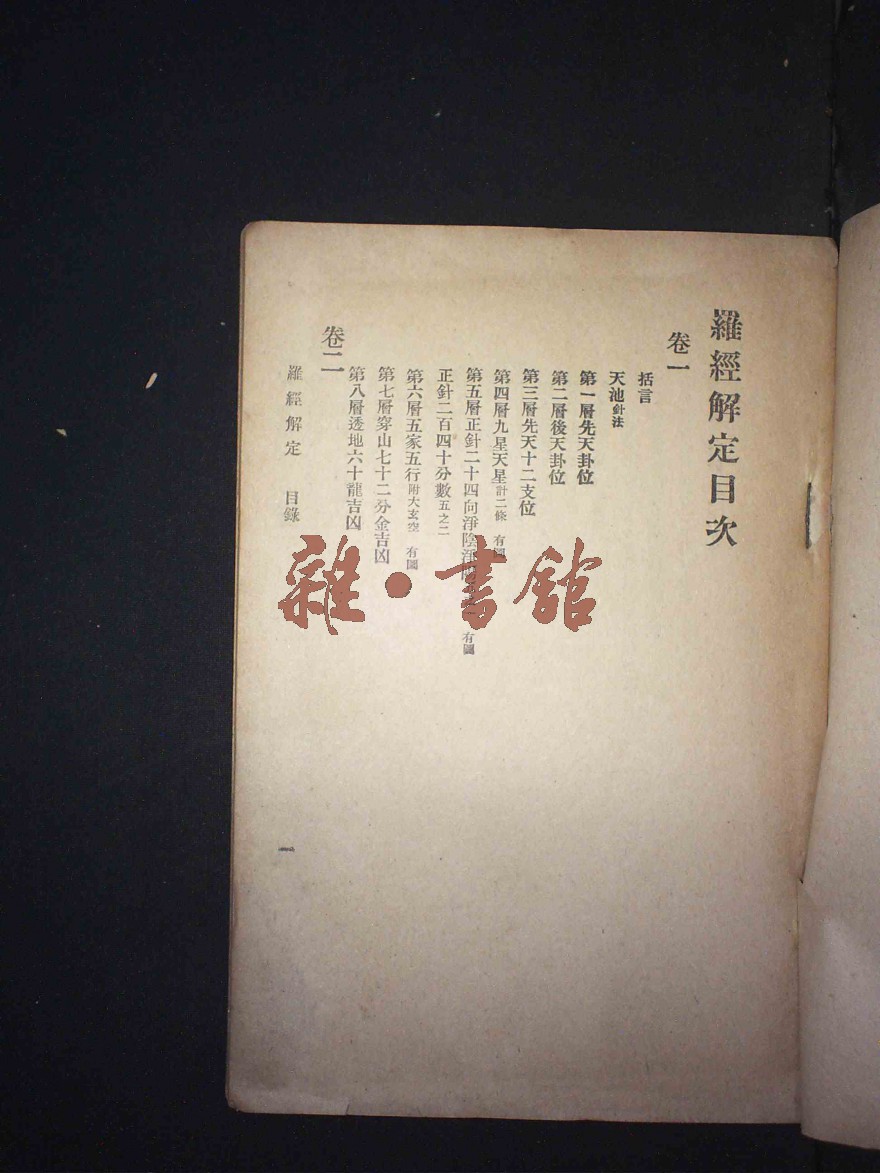 羅經解定目次
卷一
括言
天池針法
第一層先天卦位
第二層後天卦位
第三層先天十二支位
第四層九星天星計二條 有圖
第五層正針二十四向淨陰淨 有圖
正針二百四十分數五之二
第六層五家五行附大玄空 有圖
第七層穿山七十二分金吉凶
第八層透地六十龍吉凶
卷二
羅經解定 目錄
一
雜·書館